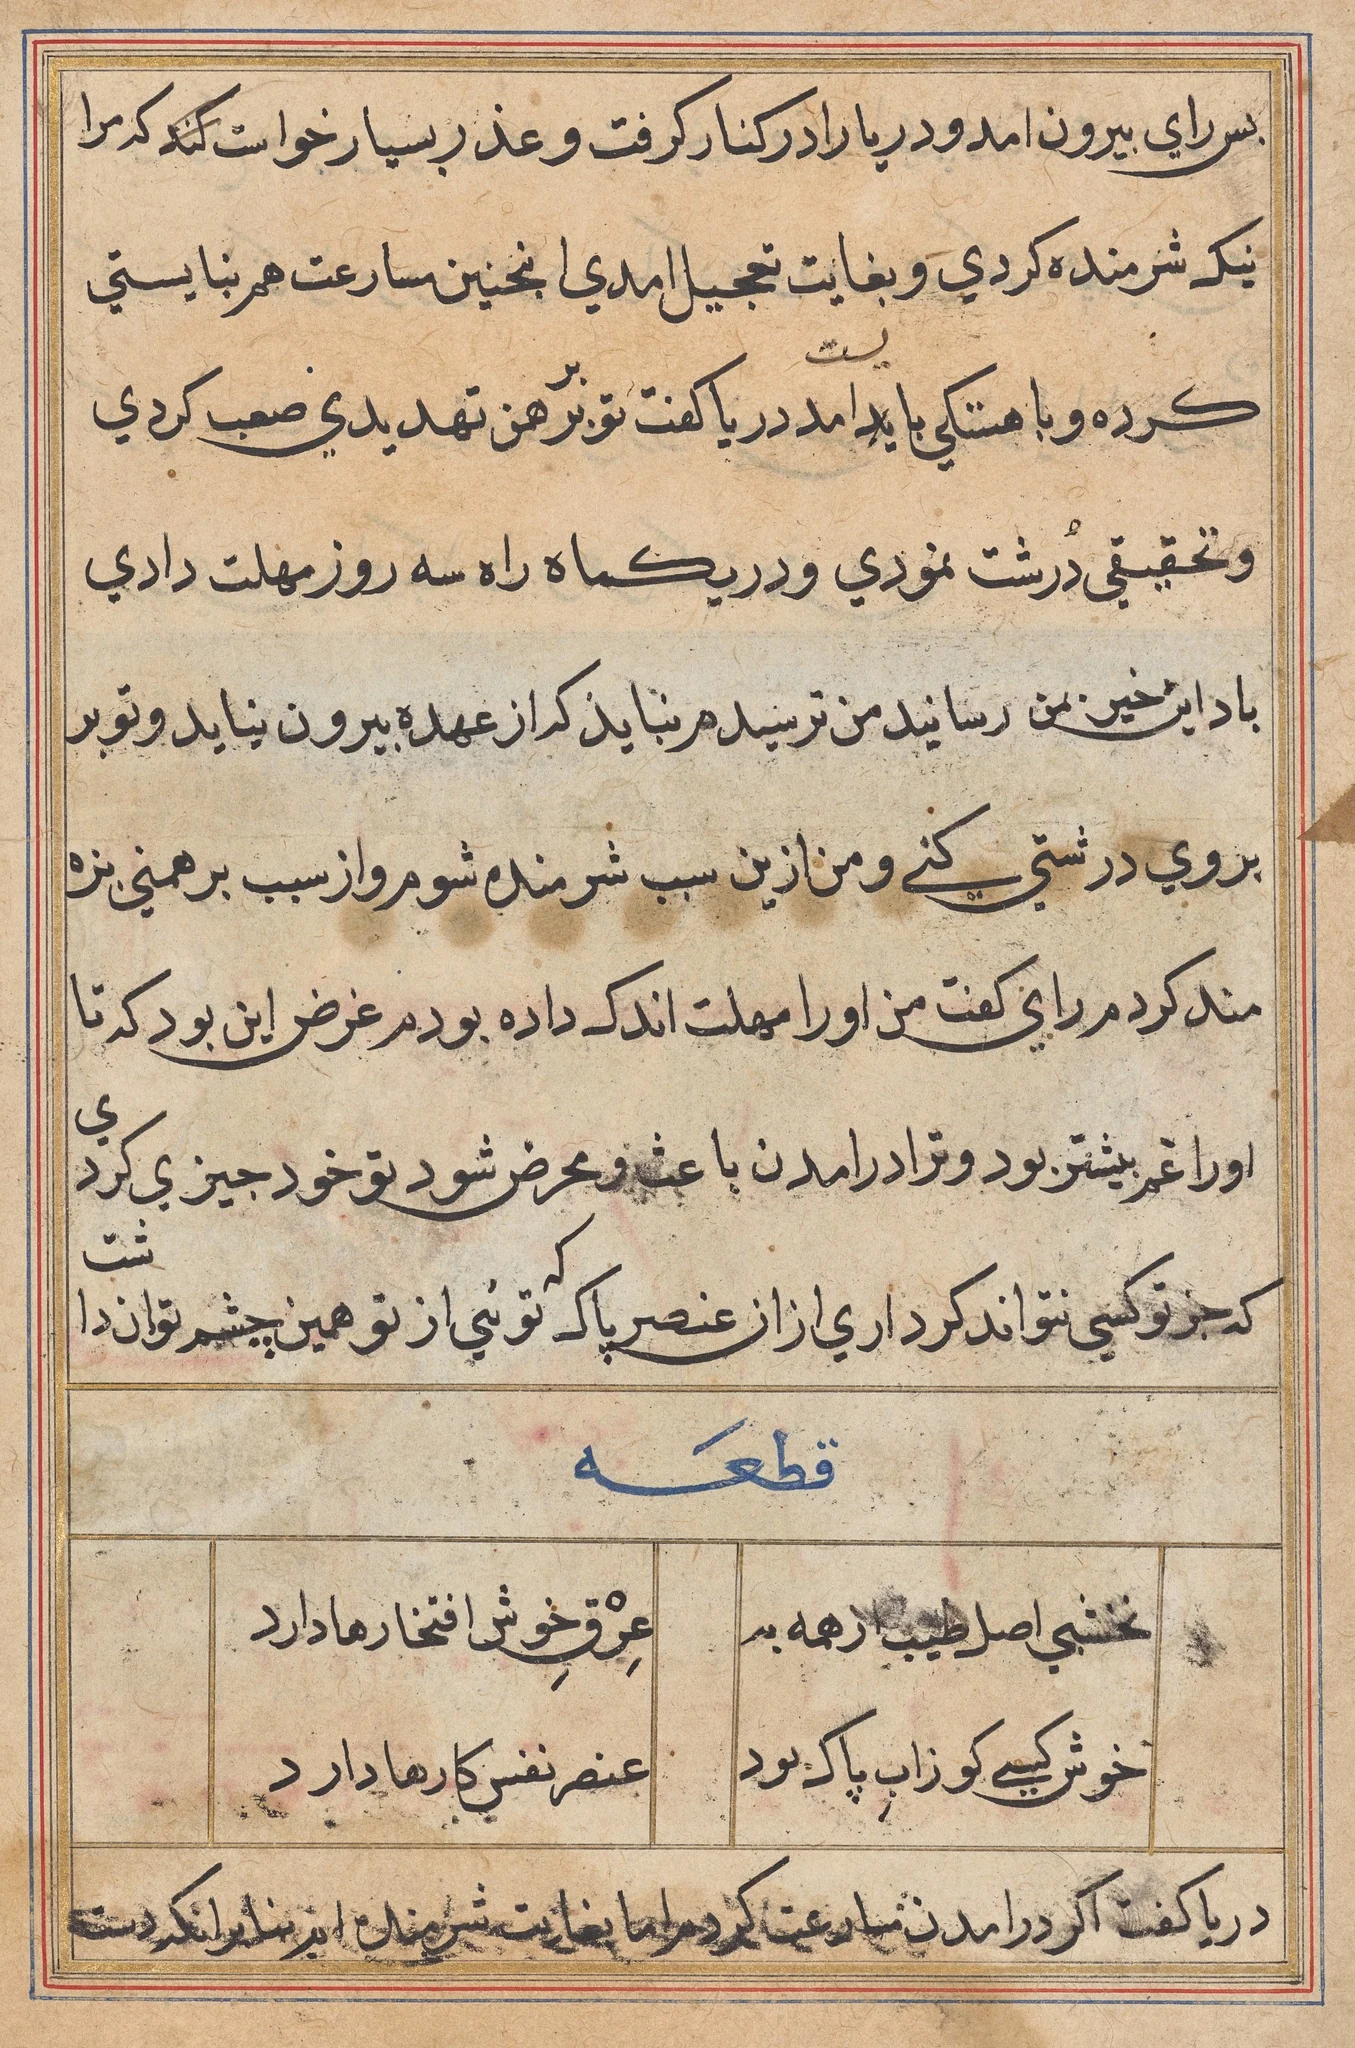 بس راي بيرون امد و دريا را در كنار كرفت و عذر بسيار خواست كه مرا
نيك شرمنده كردي و بغايت تعجيل امدي انجنين مسارعت هم نبايستي
يست
كرده و باهستكي بايد امد دريا كفت تو بر برهمن تهديدي صعب كردي
و تحقيقي دُرشت نمودي و در يكماه راه سه روز مهلت دادي
باد اين خبر بمن رسانيد من ترسيدم نبايذ كه از عهده بيرون نيايد و تو بر
بر وي درشتي كني و من ازين سبب شرمنده شوم و از سبب برهمني بزه
مند كردم راي كفت من او را مهلت اندك داده بودم غرض اين بود كه تا
او را غم بيشتر بود و ترا در امدن باعث و محرض شود تو خود جيزي كردي
كه جز تو كسي نتواند كرد اري از ان عنصر پاك كه توئي از تو همين چشم توان داشت
قطعَه
نخشبي اصل طيب از همه به
عِرْقِ خوش افتخارها دارد
خوش كسي كو زابِ پاك بود
عنصر نفس كارها دارد
دريا كفت اكر در امدن مسارعت كردم اما بغايت شرمنده ام بنا بر انكه دست